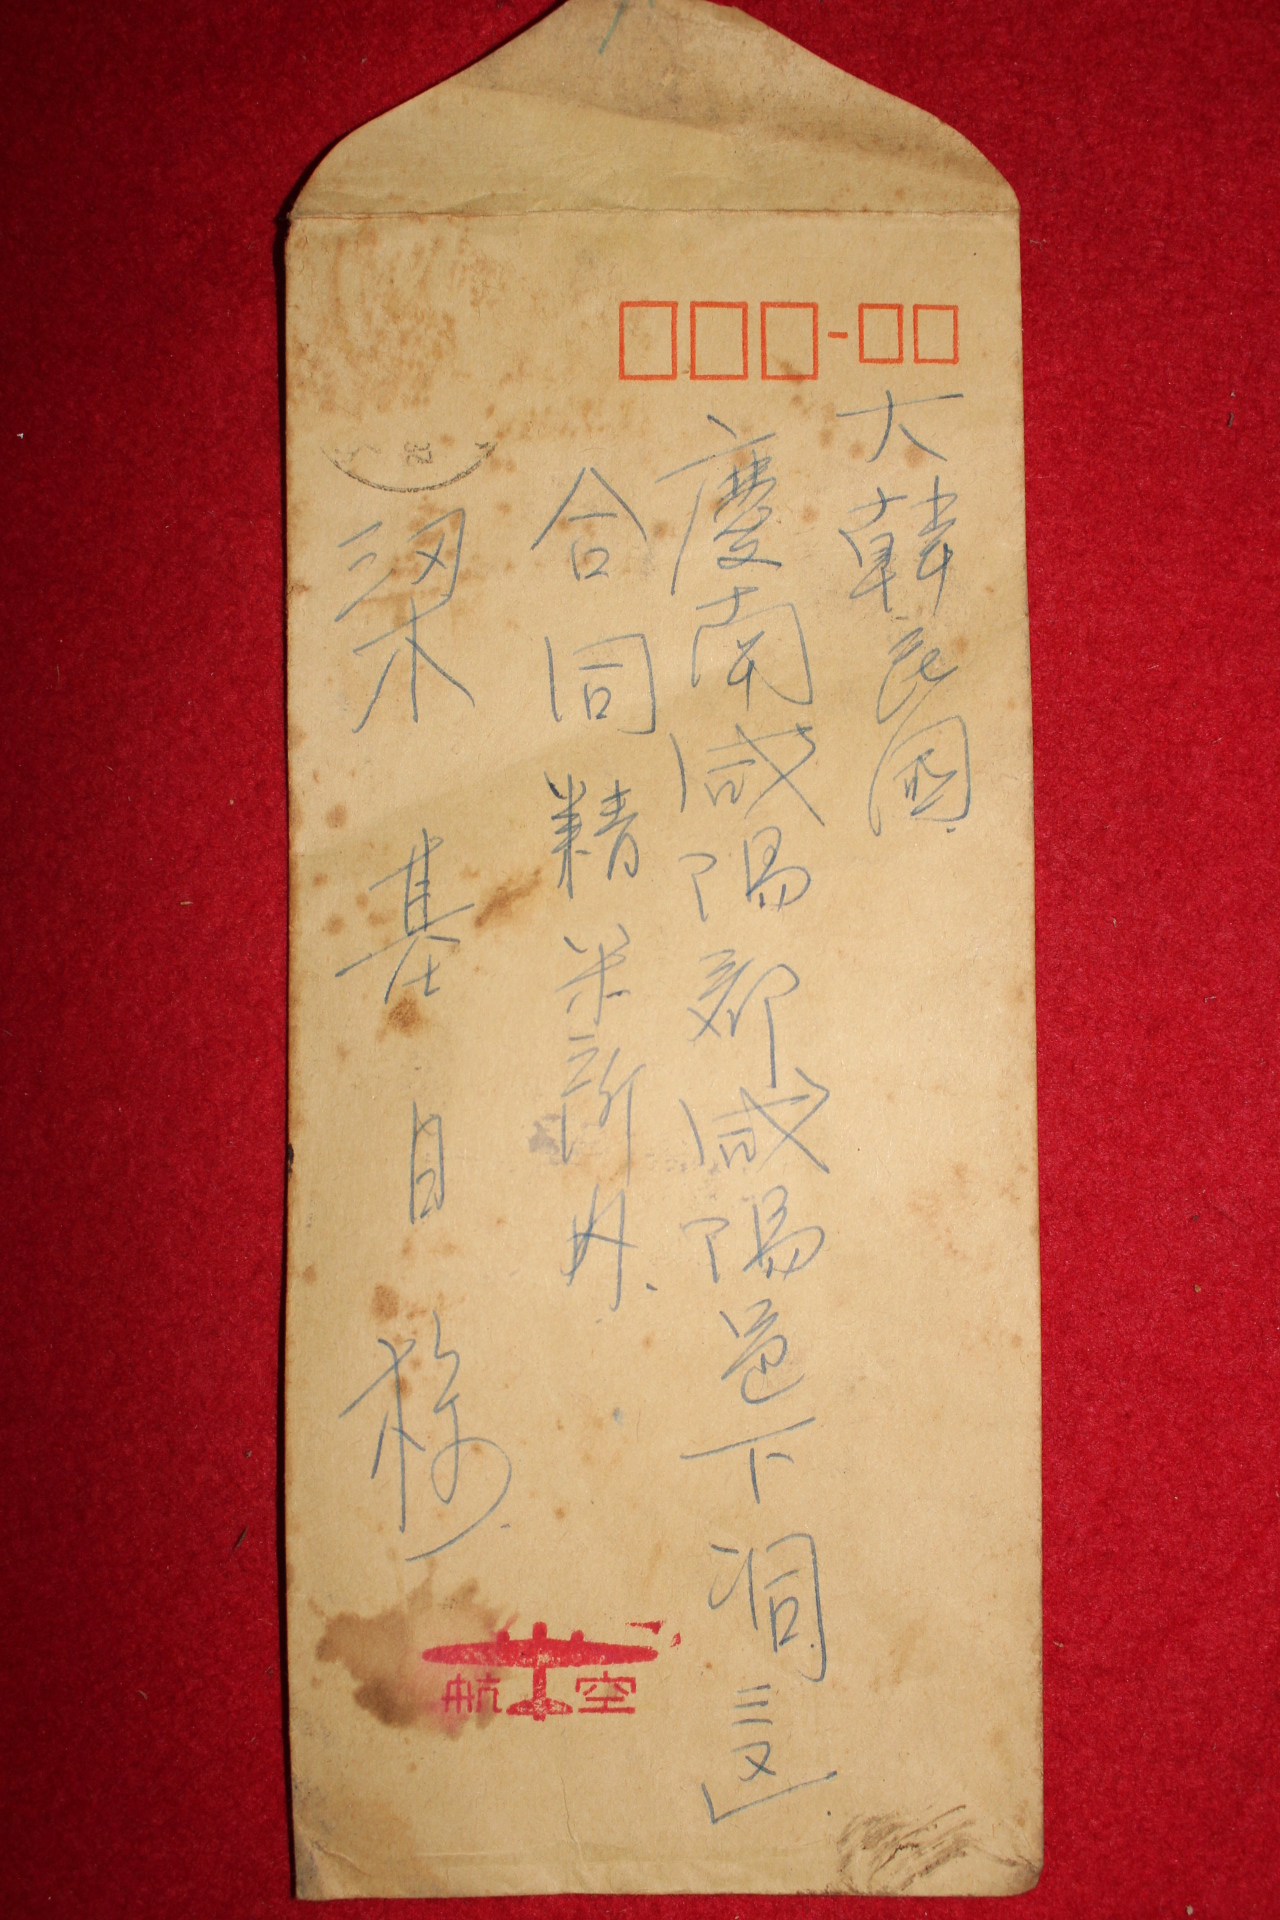 大韓民国
慶南咸陽郡咸陽邑下洞三区
合同精米所内.
梁基日様.
航空
32